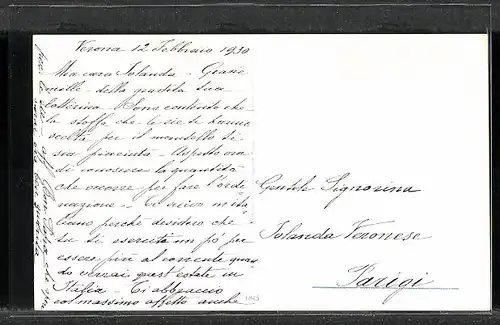 Verona 12 Febbraio 1930
Mia cara Iolanda - Grazie
mille della gradita tua
lettera. Sono contenta che
la stoffa che le zie ti hanno
scelta per il mantello ti
sia piaciuta - Aspetto ora
di conoscere la quantità
che occorre per fare l'ordi
nazione - Ti scrivo in ita
liano perchè desidero che
tu ti eserciti un po' per
essere più al corrente quan
do verrai quest'estate in
Italia - Ti abbraccio
col massimo affetto anche
per le zie
Gentile Signorina
Iolanda Veronese
Parigi